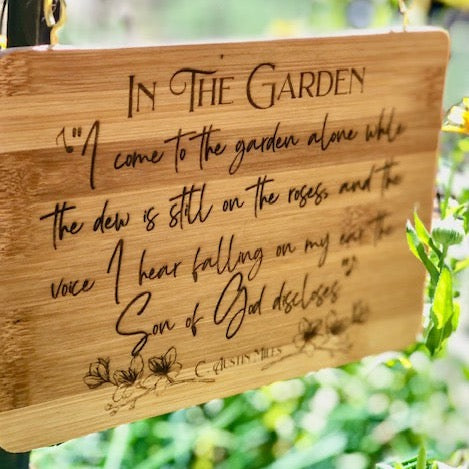 In The Garden
"I come to the garden alone whle
the dew is still on the roses, and the
voice I hear falling on my ear the
Son of God discloses"
C. Austin Miles